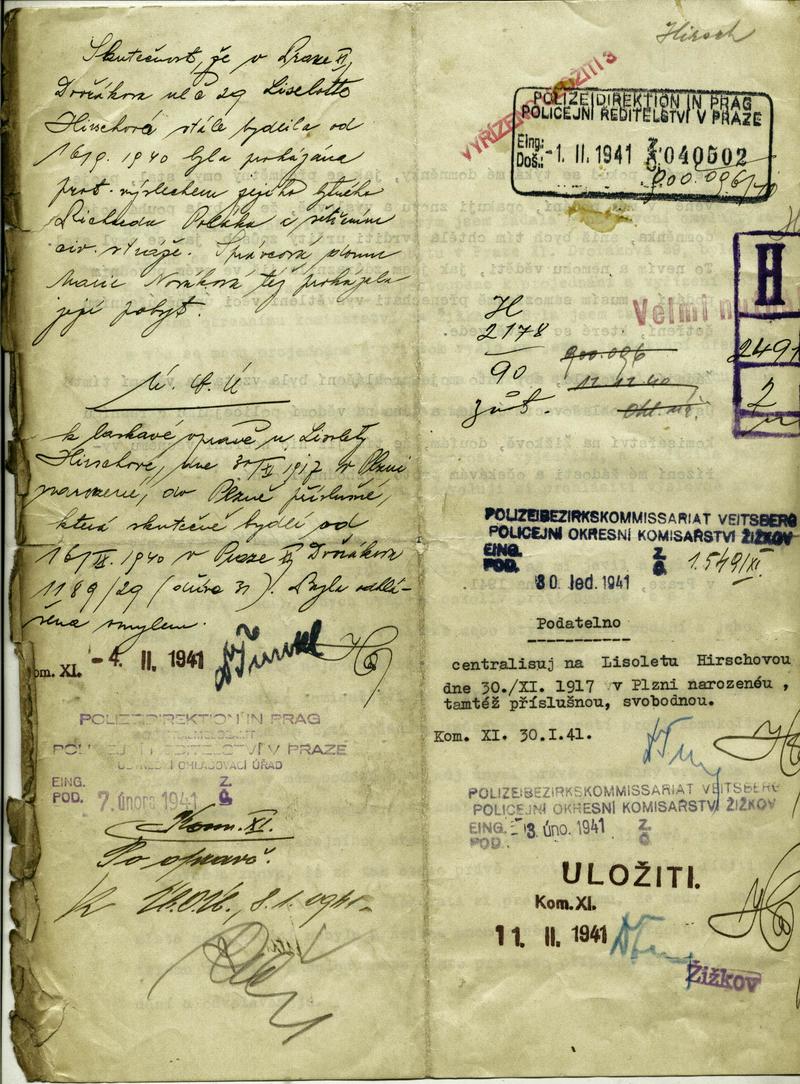 Skutečnost, že v Praze XI,
Dvořákova ul č 29 Liselotte
Hirschová stále bydlila od
16/9. 1940 byla prokázána
prot. výslechem jejího
Richarda Poláka i šetřením
civ. stráže. Správcová domu
Marie Nováková též prokázala
její pobyt.
Ú. O. Ú
k laskavé opravě u Liselotty
Hirschové, dne 30/XI 1917 v Plzni
narozené, do Plzně příslušné,
která skutečně bydlí od
16/IX. 1940 v Praze XI, Dvořákova
1189/29 (dříve 31). Byla odhlá-
šena omylem.
om. XI. - 4. II. 1941
POLIZEIDIREKTION IN PRAG
POLICEJNÍ ŘEDITELSTVÍ V PRAZE
OHLAŠOVACÍ ÚŘAD
EING. Z.
POD. 7. února 1941 Č.
Kom. XI.
Po opravě.
Hirsch
VYŘÍZENO
POLIZEIDIREKTION IN PRAG
POLICEJNÍ ŘEDITELSTVÍ V PRAZE
Eing: Z
Doš.: -1. II 1941 Č. 040502
900.096/40
H
2178
90
900.096
11.12.40
Velmi
H
2491
2
POLIZEIBEZIRKSKOMMISSARIAT VEITSBERG
POLICEJNÍ OKRESNÍ KOMISAŘSTVÍ ŽIŽKOV
EING. Z.
POD. 30 led. 1941 Č. 1.549/XI
Podatelno
centralisuj na Lisoletu Hirschovou
dne 30./XI. 1917 v Plzni narozenéu ,
tamtéž příslušnou, svobodnou.
Kom. XI. 30.I.41.
POLIZEIBEZIRKSKOMMISSARIAT VEITSBERG
POLICEJNÍ OKRESNÍ KOMISAŘSTVÍ ŽIŽKOV
EING. - 3. úno. 1941 Z.
POD. Č.
ULOŽITI.
Kom. XI.
11. II. 1941
Žižkov